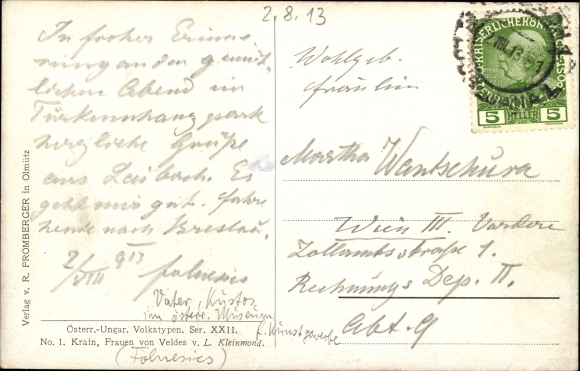 2.8.13
In froher Erinne-
rung an den gemüt-
lichen Abend im
Türkenschanzpark
herzliche Grüße
aus Laibach. Es
geht mir gut. Fahre
heute nach
2/VIII 913
Folnesics
Vater, Kustos
im österr. Museum
f. Kunstgewerbe
(Folnesics)
Österr.-Ungar. Volkstypen. Ser. XXII.
No. 1. Krain, Frauen von Veldes v. L. Kleinmond.
Verlag v. R. PROMBERGER in Olmütz
5 HELLER 5
Wohlgeb.
Fräulein
Martha Wantschura
Wien III. Vordere
Zollamtsstraße 1.
Rechnungs Dep. II.
Abt. 9